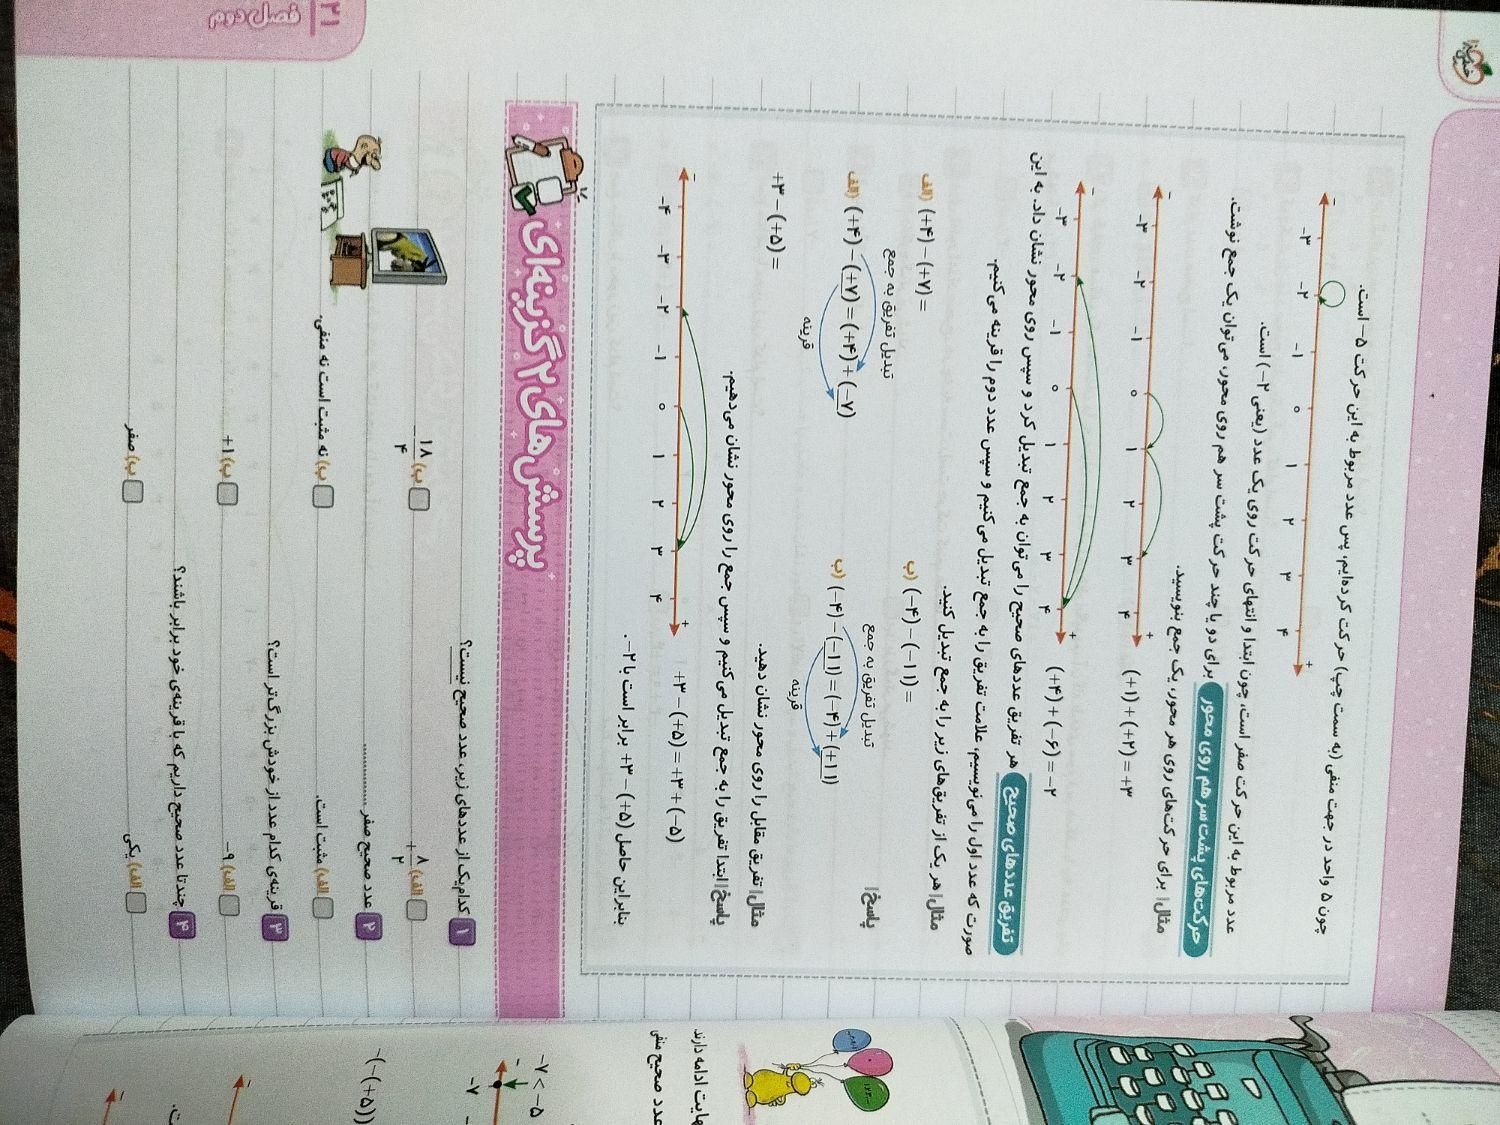 چون ۵ واحد در جهت منفی (به سمت چپ) حرکت کرده‌ایم، پس عدد مربوط به این حرکت ۵− است.
− −۳ −۲ −۱ ۰ ۱ ۲ ۳ ۴ +
عدد مربوط به این حرکت صفر است، چون ابتدا و انتهای حرکت روی یک عدد (یعنی ۲−) است.
حرکت‌های پشت سر هم روی محور برای دو یا چند حرکت پشت سر هم روی محور، می‌توان یک جمع نوشت.
مثال| برای حرکت‌های روی هر محور، یک جمع بنویسید.
− −۳ −۲ −۱ ۰ ۱ ۲ ۳ ۴ +
(+۱) + (+۲) = +۳
− −۳ −۲ −۱ ۰ ۱ ۲ ۳ ۴ +
(+۴) + (−۶) = −۲
تفریق عددهای صحیح هر تفریق عددهای صحیح را می‌توان به جمع تبدیل کرد و سپس روی محور نشان داد. به این
صورت که عدد اول را می‌نویسیم، علامت تفریق را به جمع تبدیل می‌کنیم و سپس عدد دوم را قرینه می‌کنیم.
مثال| هر یک از تفریق‌های زیر را به جمع تبدیل کنید.
الف) (+۴) − (+۷) =
ب) (−۴) − (−۱۱) =
پاسخ|
تبدیل تفریق به جمع
الف) (+۴) − (+۷) = (+۴) + (−۷)
قرینه
تبدیل تفریق به جمع
ب) (−۴) − (−۱۱) = (−۴) + (+۱۱)
قرینه
مثال| تفریق مقابل را روی محور نشان دهید.
+۳ − (+۵) =
پاسخ| ابتدا تفریق را به جمع تبدیل می‌کنیم و سپس جمع را روی محور نشان می‌دهیم.
− −۴ −۳ −۲ −۱ ۰ ۱ ۲ ۳ ۴ +
+۳ − (+۵) = +۳ + (−۵)
بنابراین حاصل (+۵) − ۳+ برابر است با ۲−.
پرسش‌های ۲ گزینه‌ای
۱ کدام‌یک از عددهای زیر، عدد صحیح نیست؟
الف) +۸/۲
ب) −۱۸/۴
۲ عدد صحیح صفر ................
الف) مثبت است.
ب) نه مثبت است نه منفی.
۳ قرینه‌ی کدام عدد از خودش بزرگ‌تر است؟
الف) −۹
ب) +۱
۴ چندتا عدد صحیح داریم که با قرینه‌ی خود برابر باشند؟
الف) یکی
ب) صفر
فصل دوم
۲۱
هایت ادامه دارند
عدد صحیح منفی
−۷ < −۵
−
−۷
−(−(+۵))
−
ت.
−